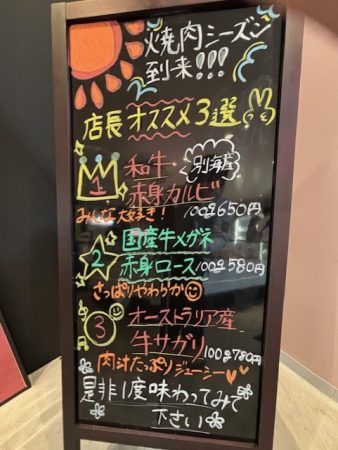 焼肉シーズン
到来!!!
店長オススメ3選
1
和牛
別海産
赤身カルビ
みんな大好き! 100g650円
2
国産牛メガネ
赤身ロース 100g580円
さっぱりやわらか
3
オーストラリア産
牛サガリ
100g780円
肉汁たっぷりジューシー
是非1度味わってみて
下さい